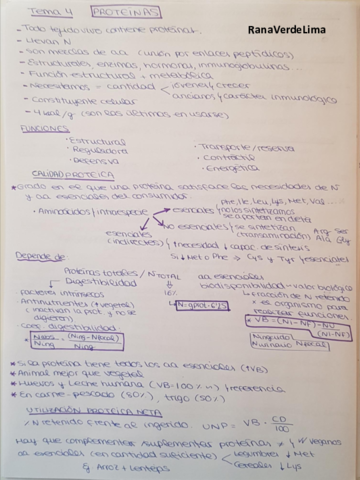 Tema 4 PROTEÍNAS
RanaVerdeLima
- Todo tejido vivo contiene proteínas.
- Llevan N
- Son mezclas de aa (unión por enlaces peptídicos)
- Estructurales, enzimas, hormonas, inmunoglobulinas...
- Función estructural + metabólica
- Necesitamos = cantidad jóvenes y crecer
ancianos y carácter inmunológico
- Constituyente celular
- 4 kcal/g (son las últimas en usarse)
FUNCIONES
· Estructural
· Transporte/reserva
· Reguladora
· Contráctil
· Defensiva
· Energética
CALIDAD PROTEICA
* Grado en el que una proteína satisface las necesidades de N
y aa esenciales del consumidor.
Phe, Ile, Leu, Lys, Met, Val...
· Aminoácidos
esenciales / no los sintetizamos
se aportan en dieta
no esenciales / se sintetizan
(transaminación)
Arg Ser
Ala Gly
esenciales
(indirectos) / ↑ necesidad ↓ capac de síntesis
Si ↓ Met o Phe → Cys y Tyr (esenciales)
Depende de
Proteínas totales / N TOTAL
aa esenciales
Digestibilidad
biodisponibilidad - valor biológico
factores intrínsecos
Antinutrientes (+ vegetal)
N · g prot · 6'25
fracción de N retenido
x el organismo para
realizar funciones
Coef. digestibilidad
* Si la proteína tiene todos los aa esenciales (↑VB)
* Animal mejor que vegetal
* Huevos y Leche humana (VB-100%) / referencia
* En carne-pescado (80%), trigo (50%)
UTILIZACIÓN PROTEICA NETA
/ N retenido frente al ingerido UNP = VB · CD/100
Hay que complementar/suplementar proteínas x
aa esenciales (en cantidad suficiente)
veganos
legumbres ↓ Met
Cereales ↓ Lys
Ej Arroz + Lentejas